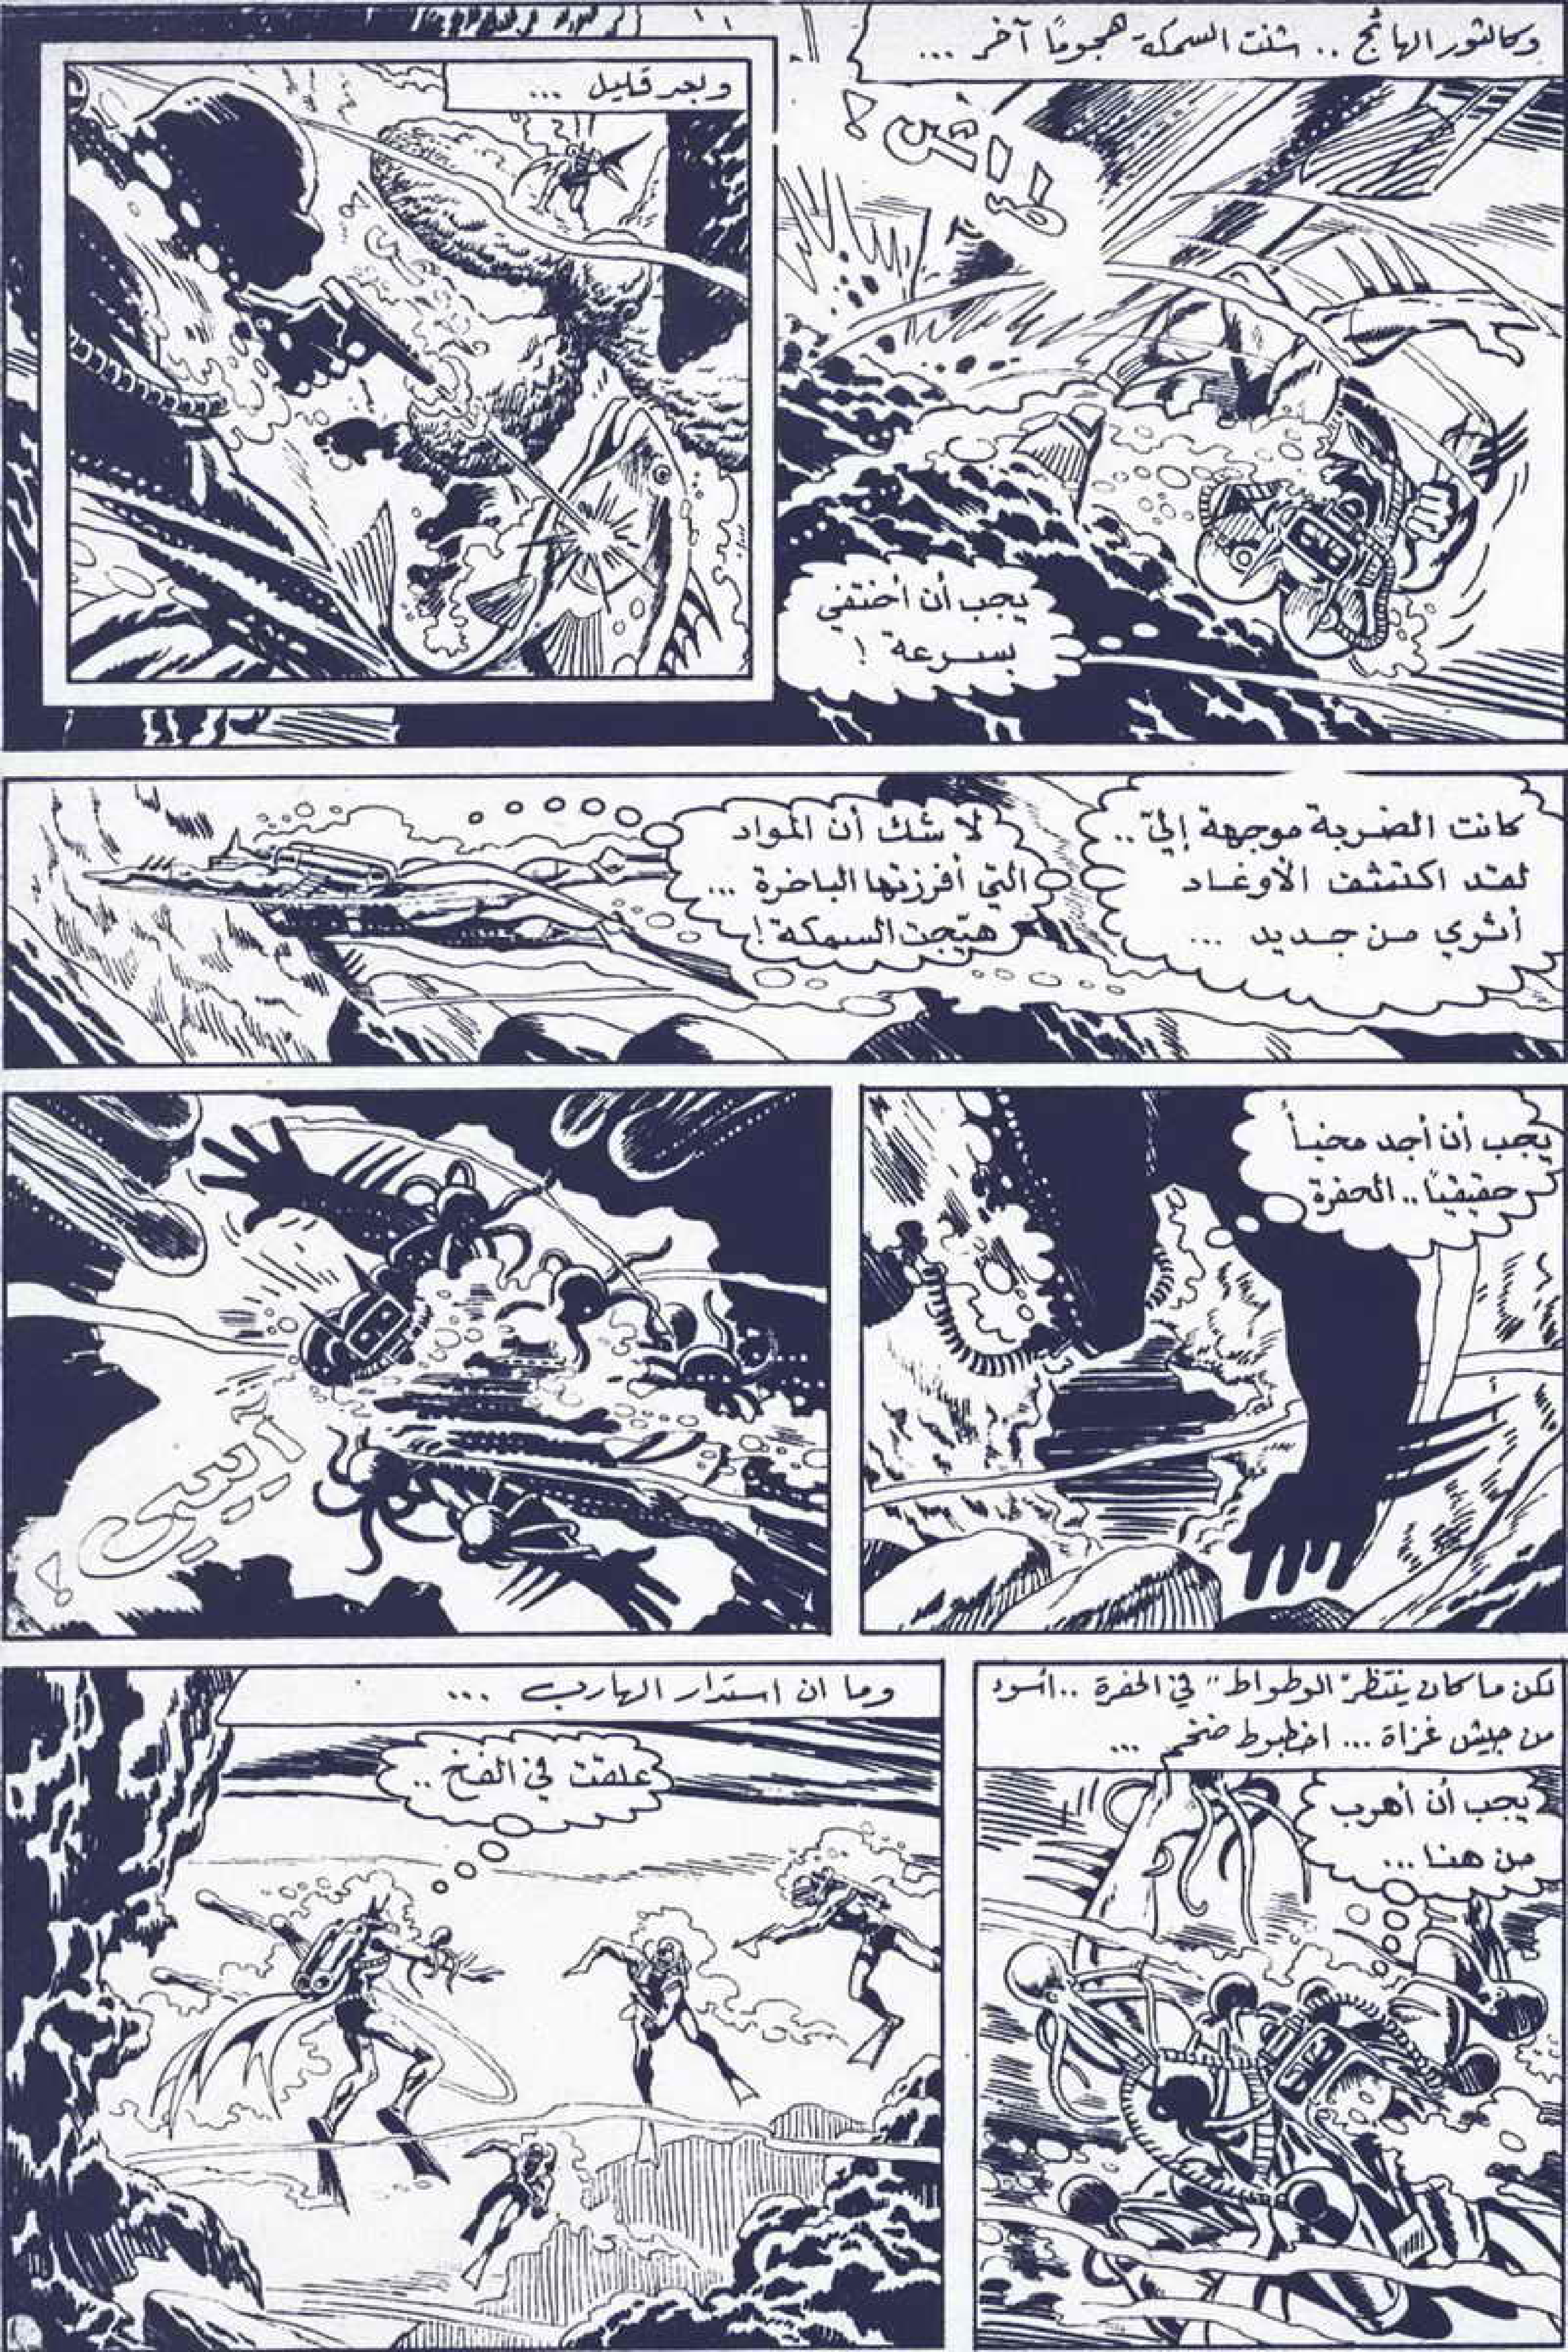 وكالثور الهائج .. شنت السمكة هجومًا آخر ...
طراش !
يجب أن أختفي
بسرعة !
وبعد قليل ...
كانت الضربة موجهة إليّ ..
لقد اكتشف الأوغاد
أثري من جديد ...
لا شك أن المواد
التي أفرزتها الباخرة ...
هيّجت السمكة !
يجب أن أجد مخبأ
حقيقيًا .. الحفرة
!
لكن ما كان ينتظر "الوطواط" في الحفرة .. أسوء
من جيش غزاة ... اخطبوط ضخم ...
يجب أن أهرب
من هنا ...
وما ان استدار الهارب ...
علقت في الفخ ..